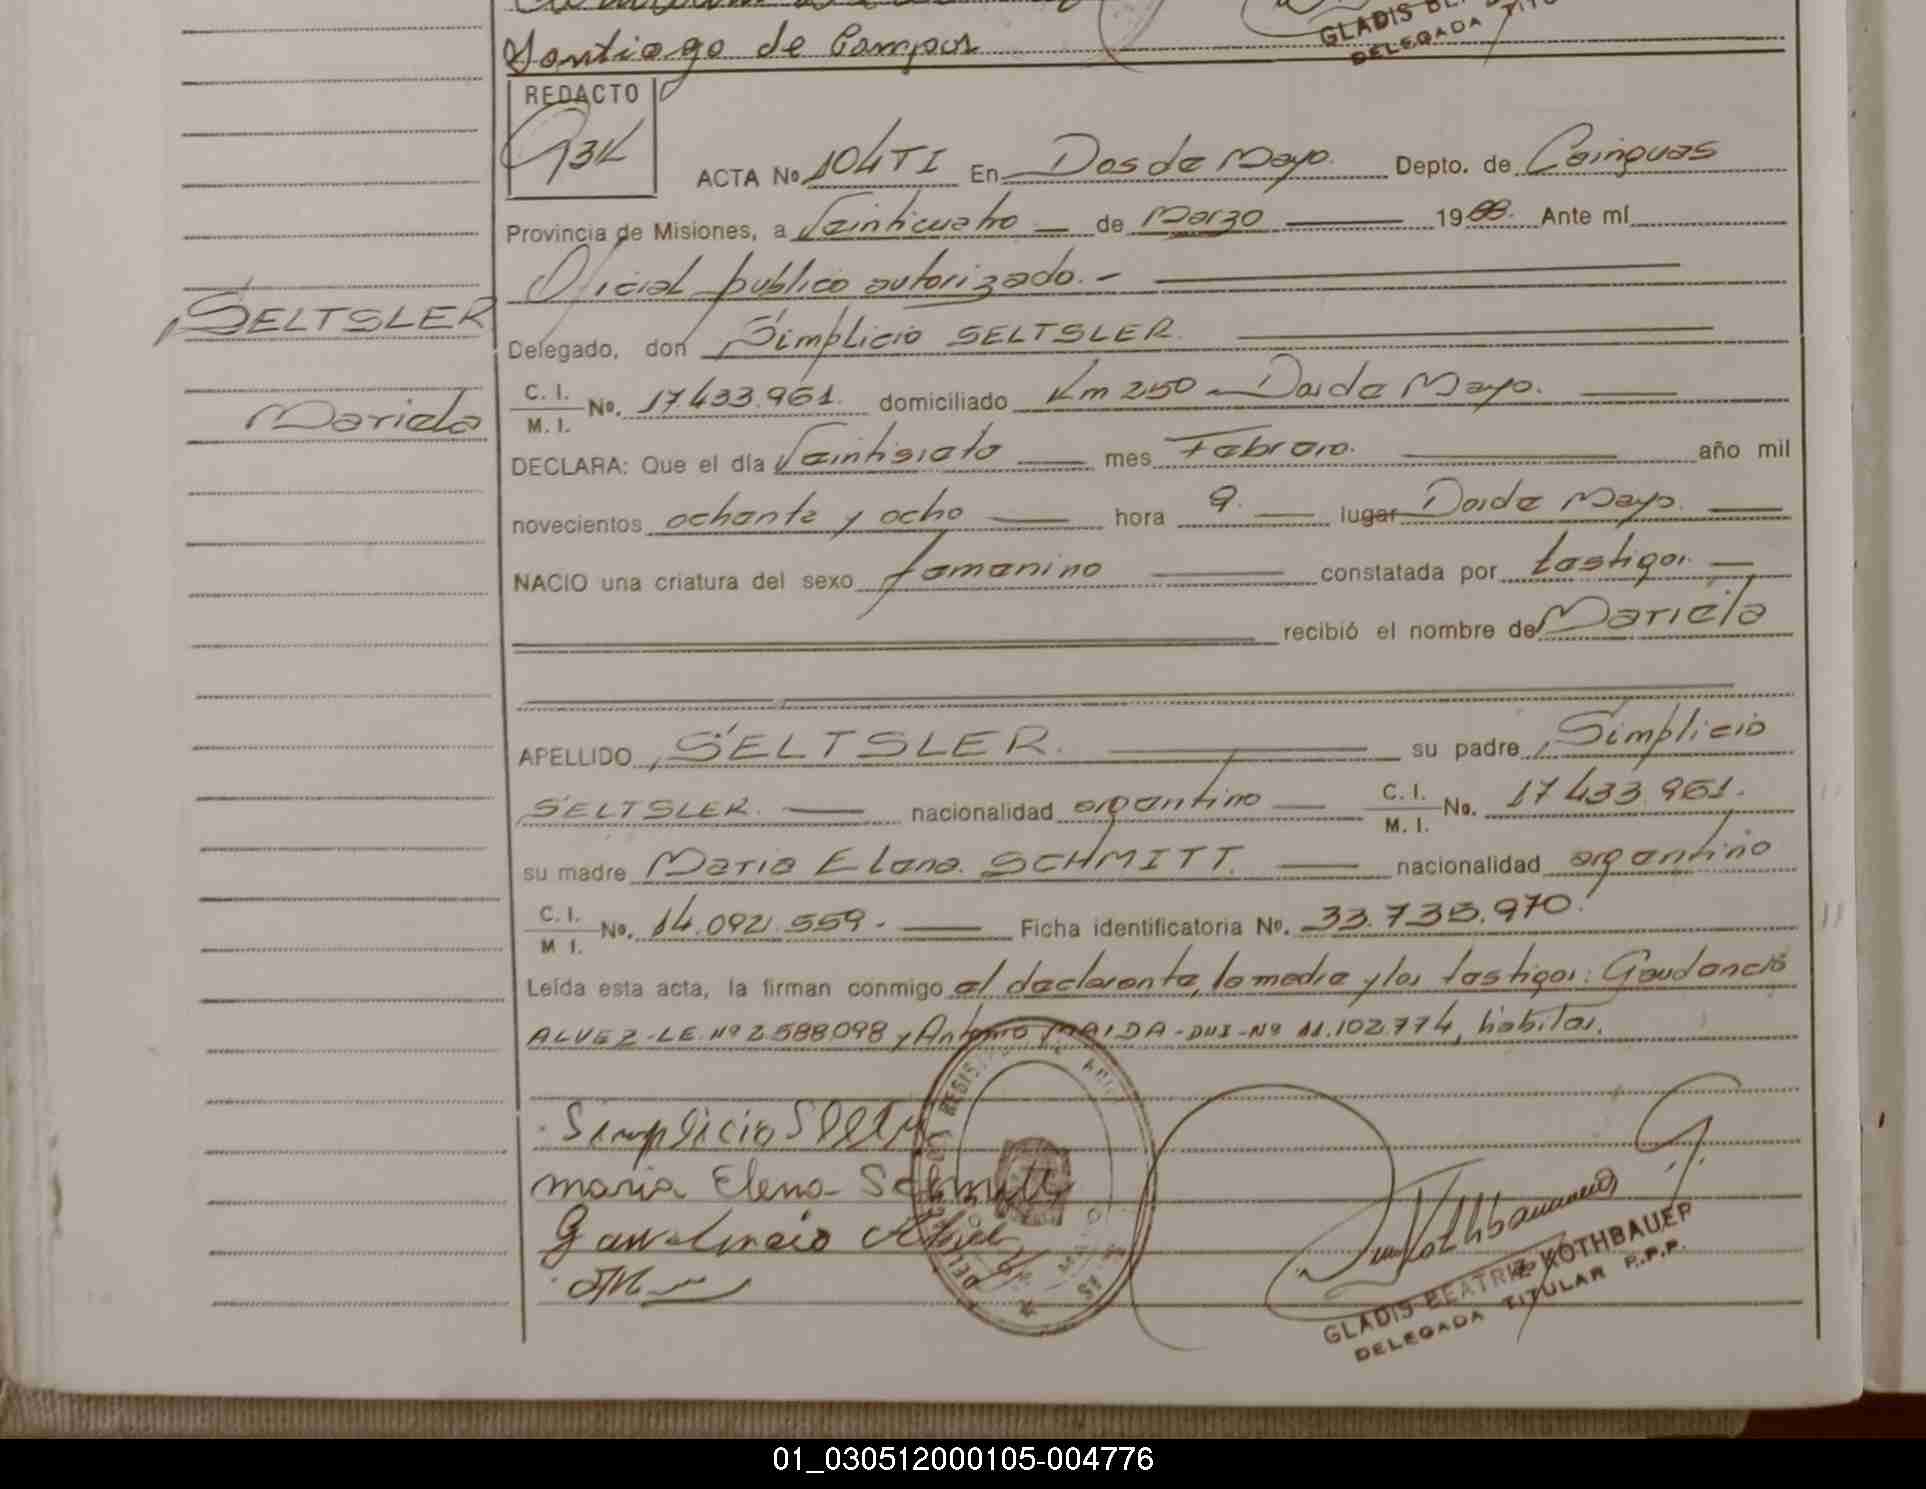 Santiago de Campos
GLADIS
DELEGADA TITU
REDACTO
ACTA Nº 104 TI En Dos de Mayo. Depto. de Cainguas
Provincia de Misiones, a Veinticuatro de Marzo 1988. Ante mí
Oficial publico autorizado.-
SELTSLER
Delegado, don Simplicio SELTSLER.
C. I.
M. I. Nº. 17.433.961. domiciliado Km 250 - Dos de Mayo.
Mariela
DECLARA: Que el día Veintisiete mes Febrero. año mil
novecientos ochenta y ocho hora 9. lugar Dos de Mayo.
NACIO una criatura del sexo femenino constatada por testigos.
recibió el nombre de Mariela
APELLIDO SELTSLER. su padre Simplicio
SELTSLER. nacionalidad argentino C. I.
M. I. Nº. 17.433.961.
su madre Maria Elena SCHMITT. nacionalidad argentino
C. I.
M I. Nº. 14.092.559.- Ficha identificatoria Nº. 33.735.970.
Leída esta acta, la firman conmigo el declarante, la madre y los testigos: Gaudencio
ALVEZ-LE. Nº 2.588.098 y Antonio MAIDA-DNI-Nº 11.102.774, habiles.
Simplicio
maria Elena Schmitt
GLADIS BEATRIZ KOTHBAUER
DELEGADA TITULAR R.P.P.
01_030512000105-004776